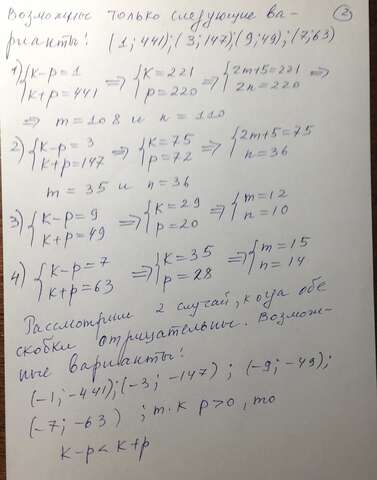 Возможные только следующие ва-
рианты: (1; 441); (3; 147); (9; 49); (7; 63)
(2)
1) {k-p=1 k+p=441 => {k=221 p=220 => {2m+5=221 2n=220 =>
=> m=108 и n=110
2) {k-p=3 k+p=147 => {k=75 p=72 => {2m+5=75 n=36
m=35 и n=36
3) {k-p=9 k+p=49 => {k=29 p=20 => {m=12 n=10
4) {k-p=7 k+p=63 => {k=35 p=28 => {m=15 n=14
Рассмотрим 2 случай, когда обе
скобки отрицательные. Возмож-
ные варианты:
(-1; -441); (-3; -147); (-9; -49);
(-7; -63); т.к p>0, то
k-p<k+p